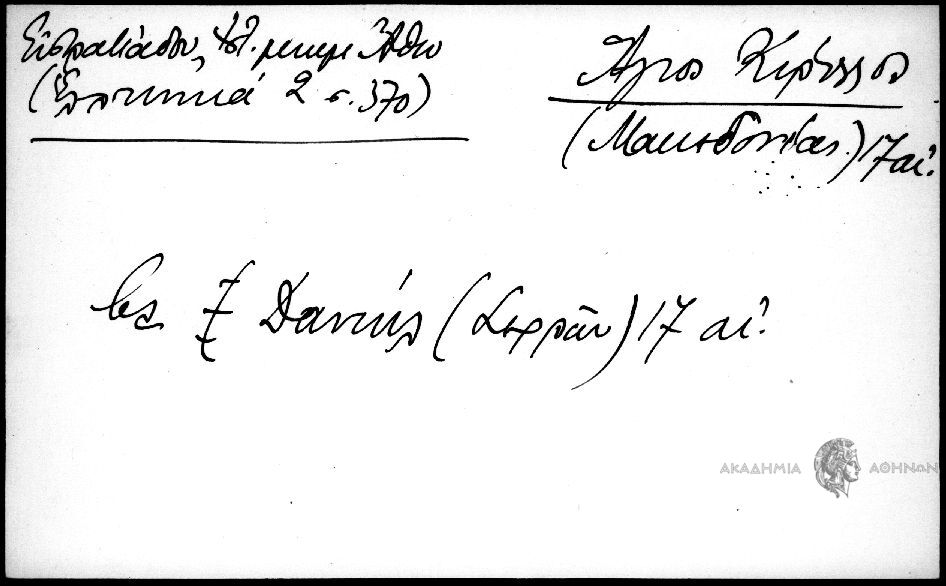 Εὐστρατιάδου, Ἁγ. μικρὰ Ἄθω
(Ἑλληνικά 2 σ. 370)
Ἅγιος Κύριλλος
(Μακεδονίας) 17 αἰ.
βλ. Ζ Δανιήλ (Σερρῶν) 17 αἰ.
ΑΚΑΔΗΜΙΑ ΑΘΗΝΩΝ